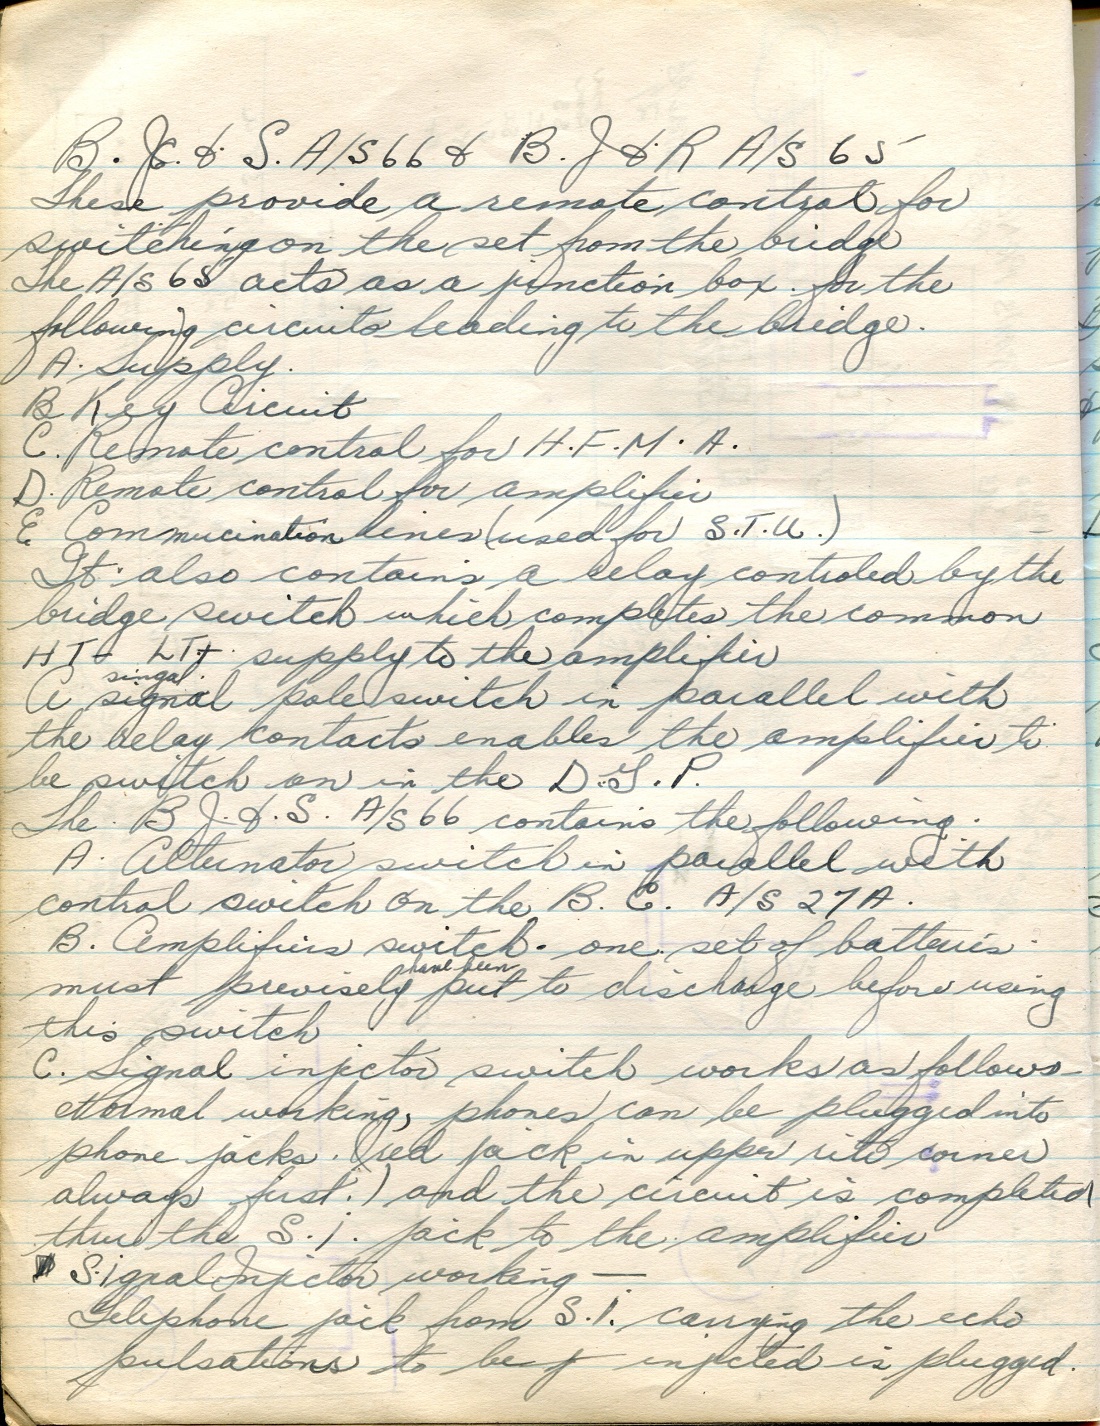 B. J. & S. A/S 66 & B. J & R A/S 65
These provide a remote control for
switching on the set from the bridge
The A/S 65 acts as a junction box. for the
following circuits leading to the bridge.
A. Supply.
B Key Circuit
C. Remote control for H.F.M.A.
D. Remote control for amplifier
E Commucination lines (used for S.T.U.)
It also contains a relay controled by the
bridge switch which completes the common
HT- LT+ supply to the amplifier
singal.
A signal pole switch in parallel with
the relay contacts enables the amplifier to
be switch on in the D.G.P.
The B J. & S. A/S 66 contains the following.
A. Alternator switch in parallel with
control switch on the B. E. A/S 27A.
B. Amplifiers switch. one set of batteries
have been
must previsely put to discharge before using
this switch
C. Signal injector switch works as follows-
Normal working, phones can be plugged into
phone jacks. (red jack in upper rite corner
always first.) and the circuit is completed
thru the S.i. jack to the amplifier
Signal Injector working —
Telephone jack from S.i. carrying the echo
pulsations to be injected is plugged.